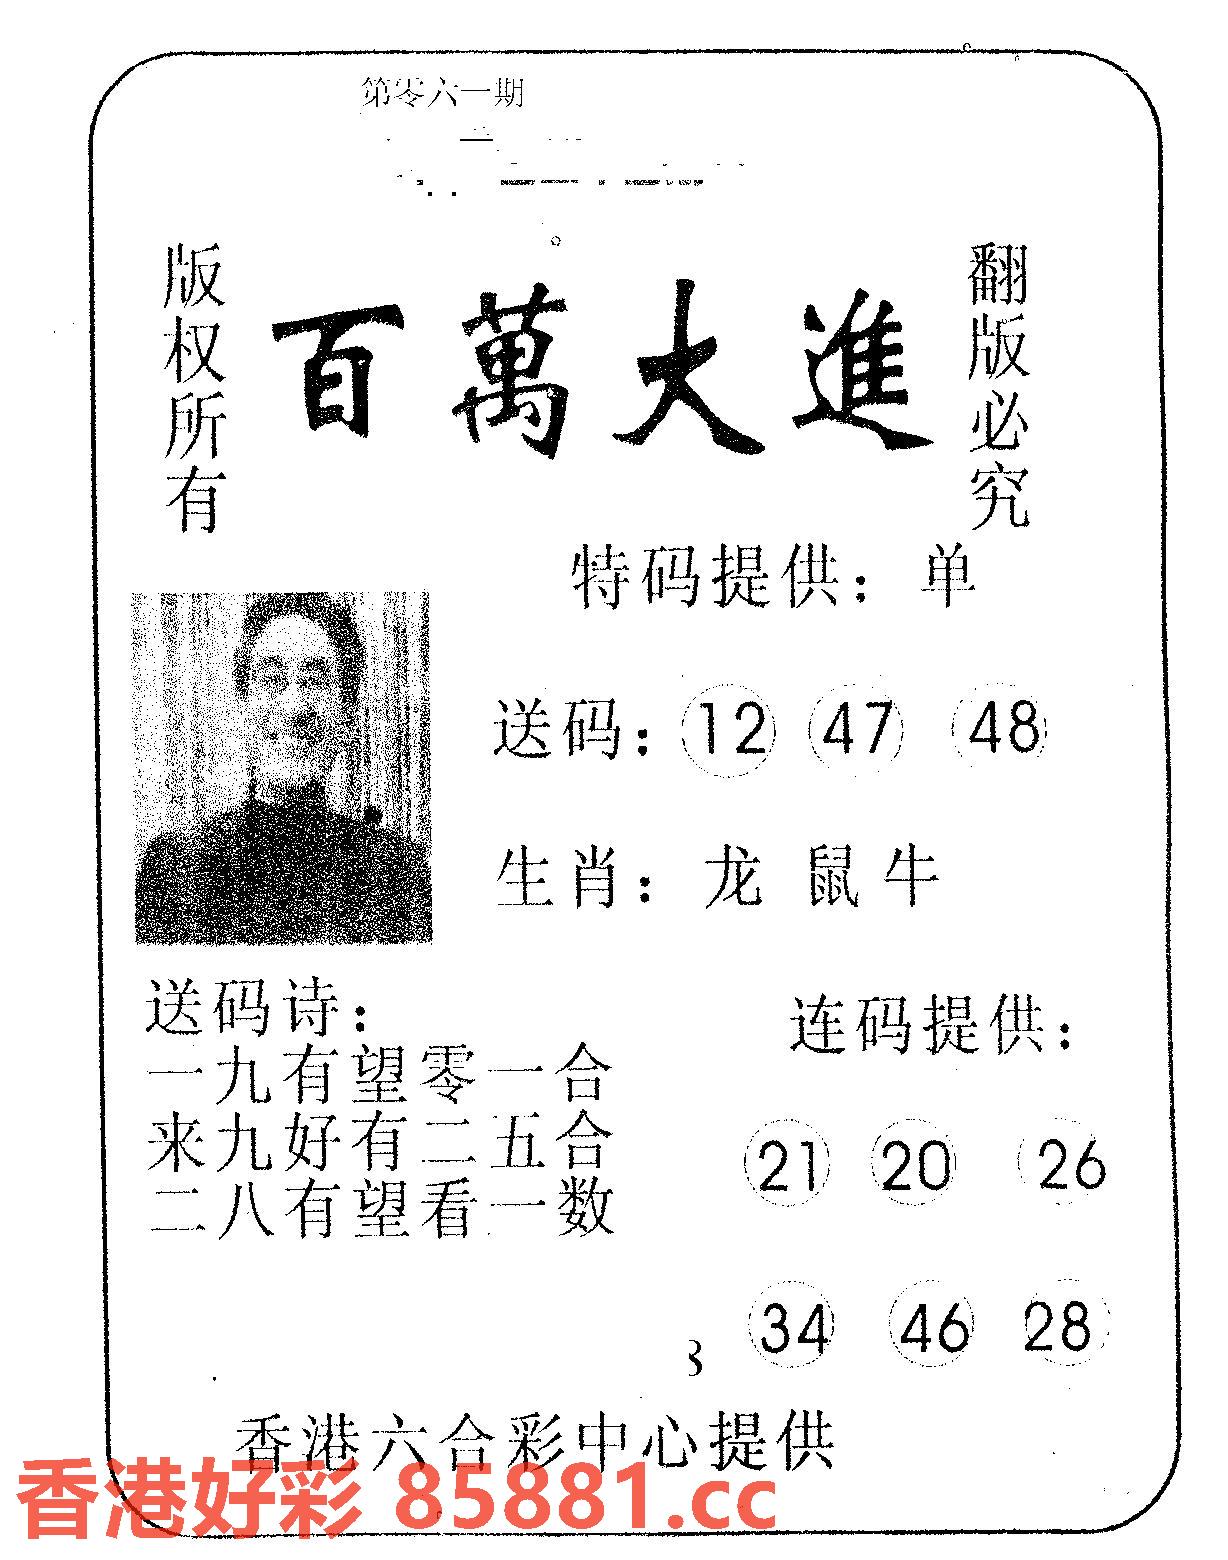 第零六一期
版权所有
百萬大進
翻版必究
特码提供：单
送码：12 47 48
生肖：龙 鼠 牛
送码诗：
一九有望零一合
来九好有二五合
二八有望看一数
连码提供：
21 20 26
34 46 28
香港六合彩中心提供
香港好彩 85881.cc